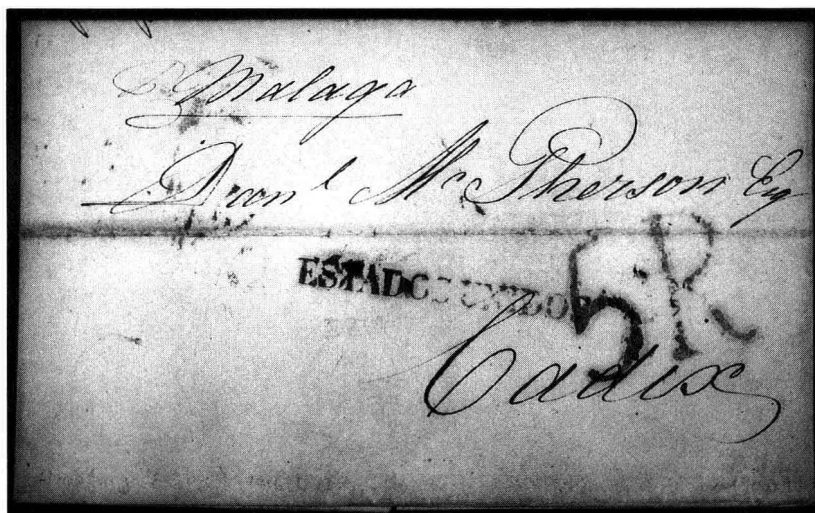 Malaga
Dan l McPherson Esq
ESTADOS UNIDOS
5R
Cadix